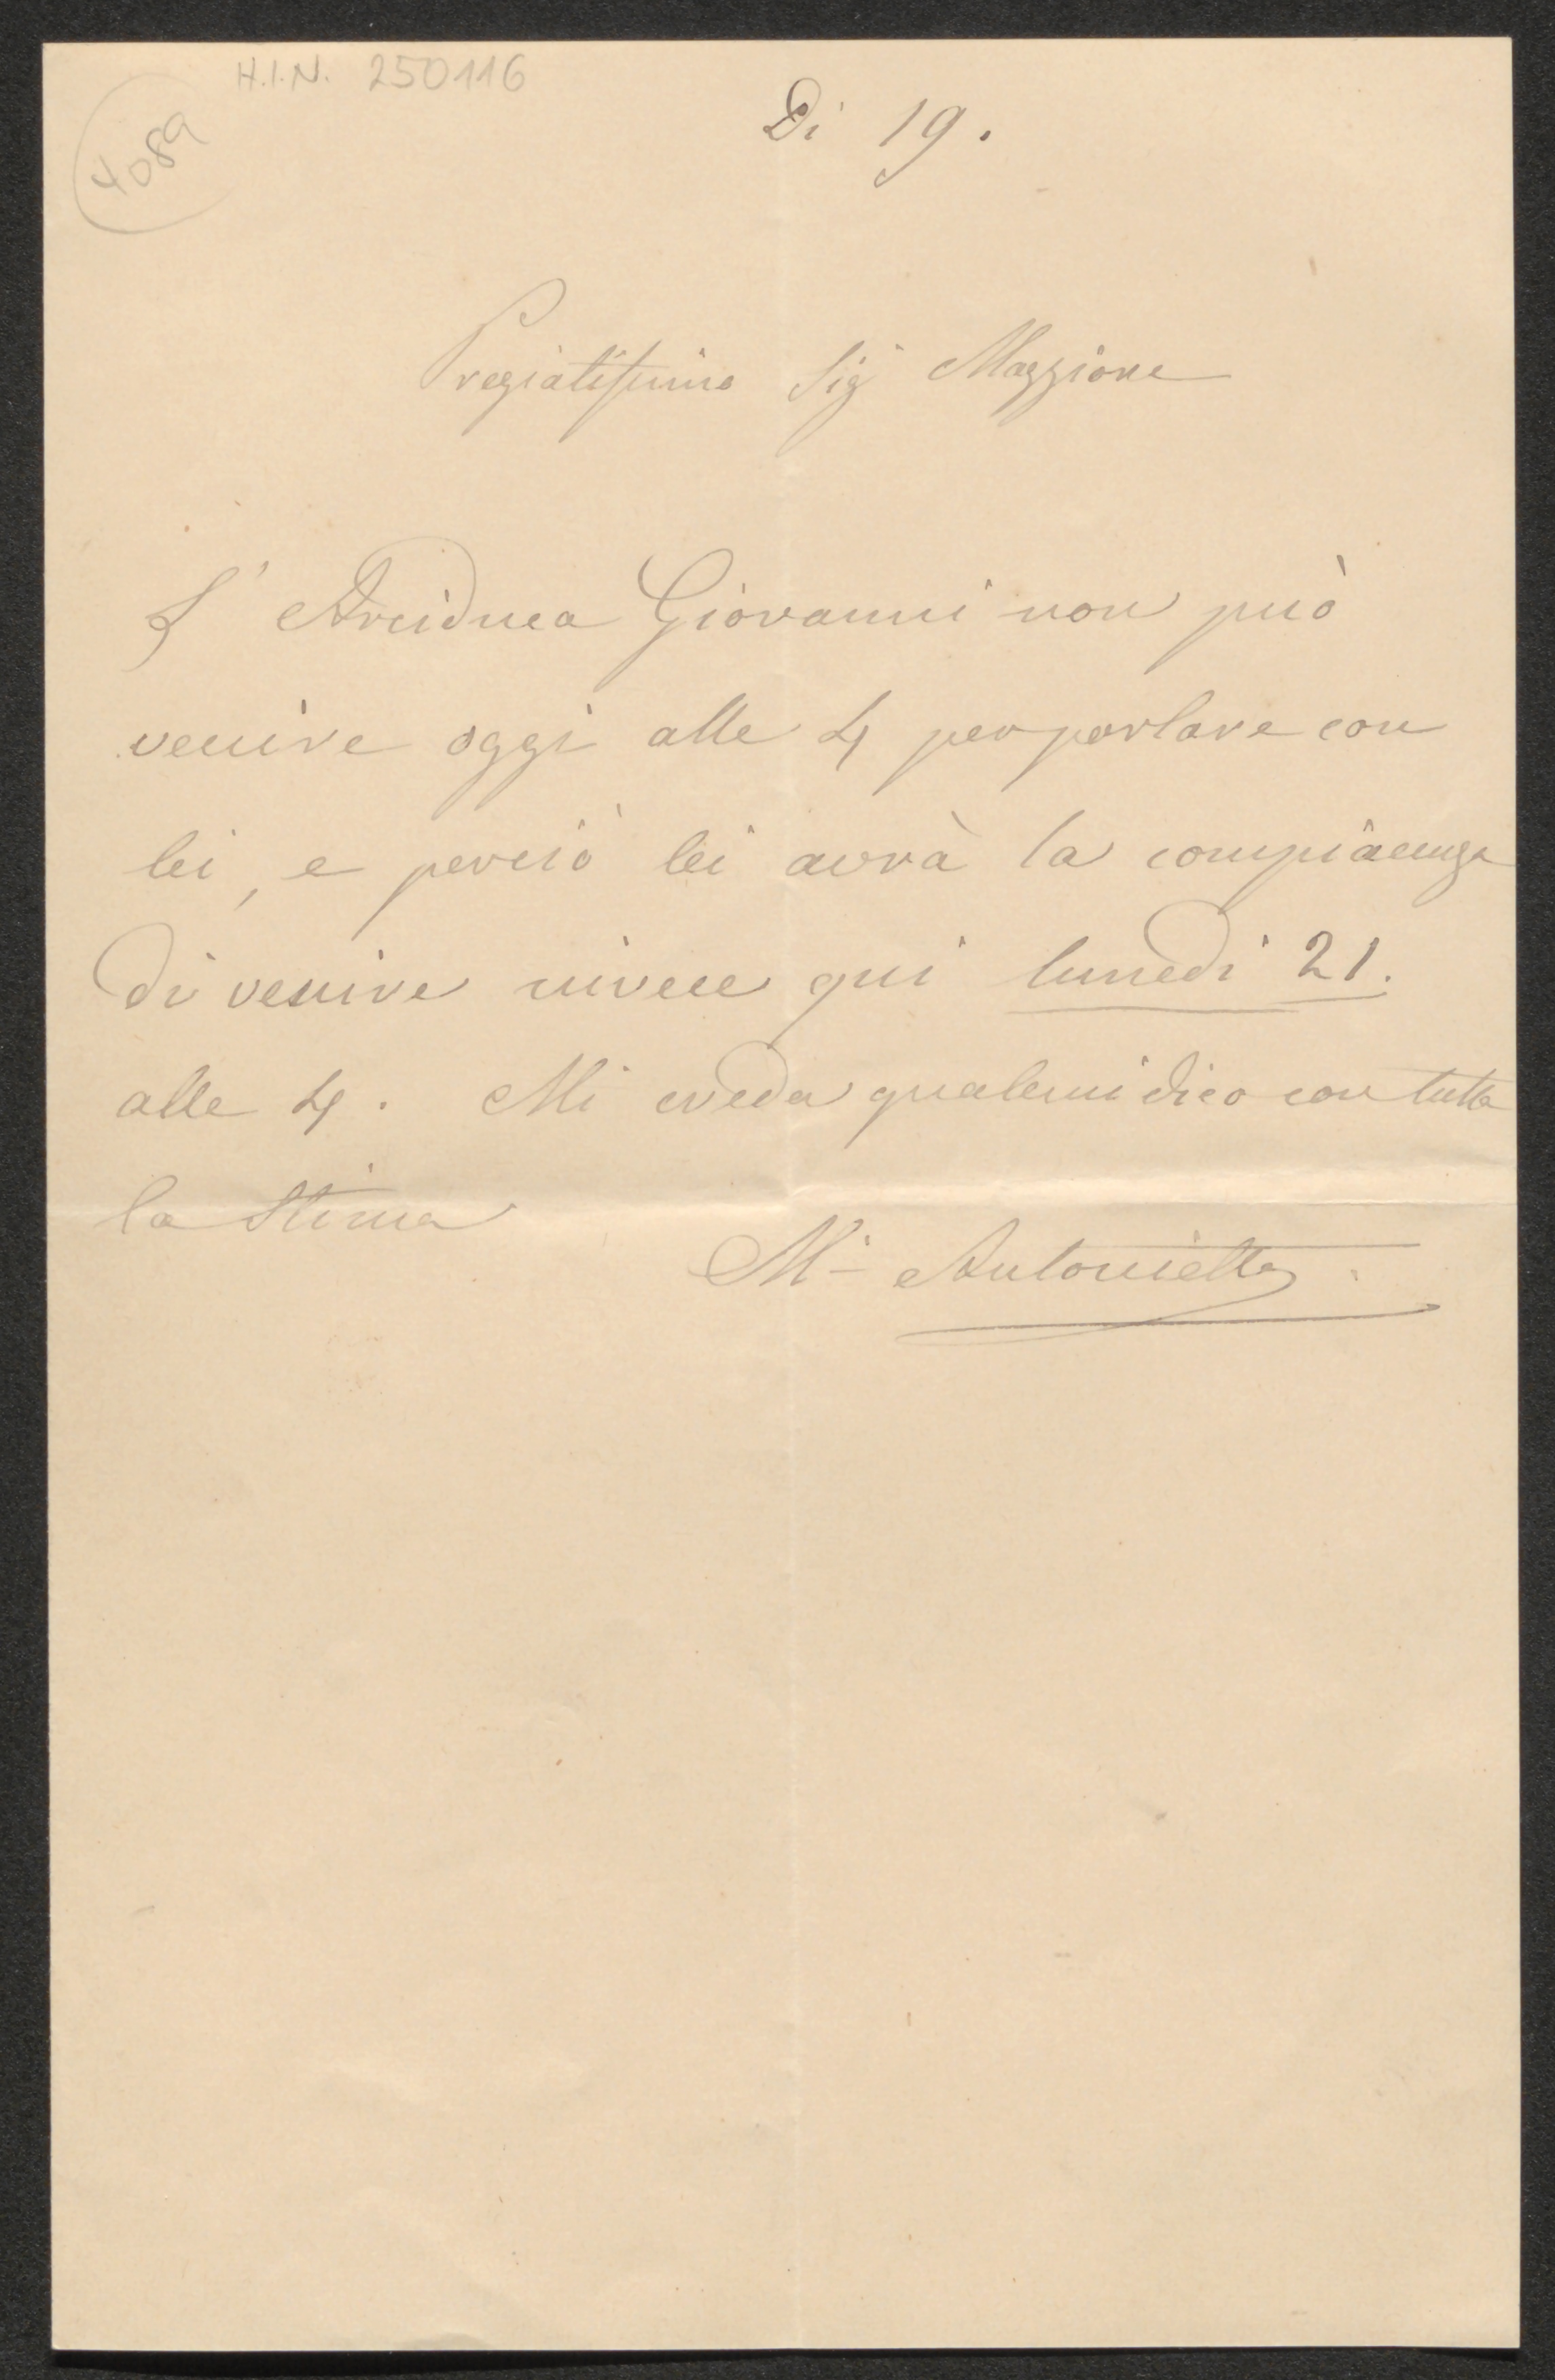 H.I.N. 250116
4089
Di 19.
Pregiatissimo Sig Maggiore
L' Arciduca Giovanni non può
venire oggi alle 4 per parlare con
lei, e perciò lei avrà la compiacenza
di venire invece qui lunedi 21.
alle 4. Mi creda quale mi dico con tutta
la stima
M. Antonietta